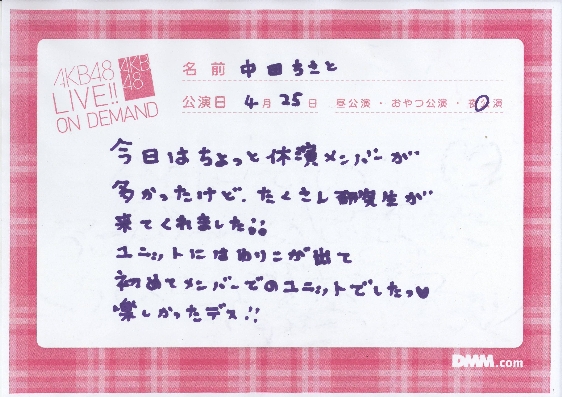 AKB48
LIVE!!
ON DEMAND
AKB
48
名前 中田ちさと
公演日 4月25日 昼公演・おやつ公演・夜公演
今日はちょっと休演メンバーが
多かったけど、たくさん研究生が
来てくれました!!
ユニットにはわりこが出て
初めてメンバーでのユニットでしたっ♥
楽しかったデス!!
DMM.com